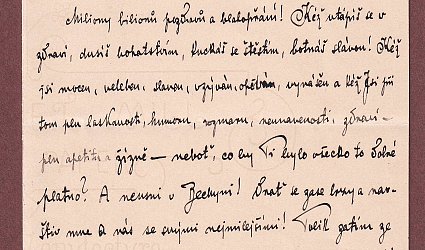 Miliony bilionů pozdravů a blahopřání! Kéž utápíš se v
zdraví, dusíš bohatstvím, kuckáš se štěstím, botnáš slávou! Kéž
jsi mocen, veleben, slaven, vzýván, opěván, vynášen a kéž jsi při
tom pln laskavosti, humoru, rozmaru, neunavenosti, zdraví -
pln apetitu a žízně — neboť, co by Ti bylo všecko to
platno? A neumři v Bechyni! Snaž se zase brzy a nav-
štiv mne a nás se svými nejmilejšími! Tolik zatím ze